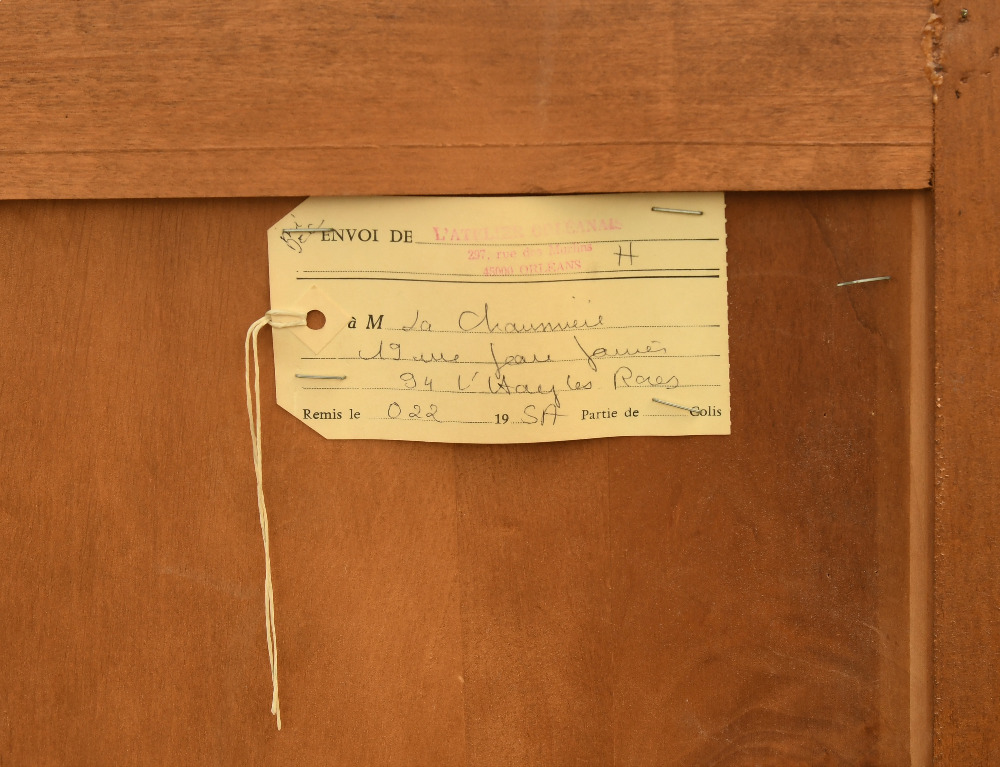 ENVOI DE L'ATELIER ORLEANAIS
297, rue des H
45000 ORLEANS
à M La Chaumière
19 rue Jean Jaurès
94 L'Hay les Roses
Remis le 022 19 SA Partie de Colis